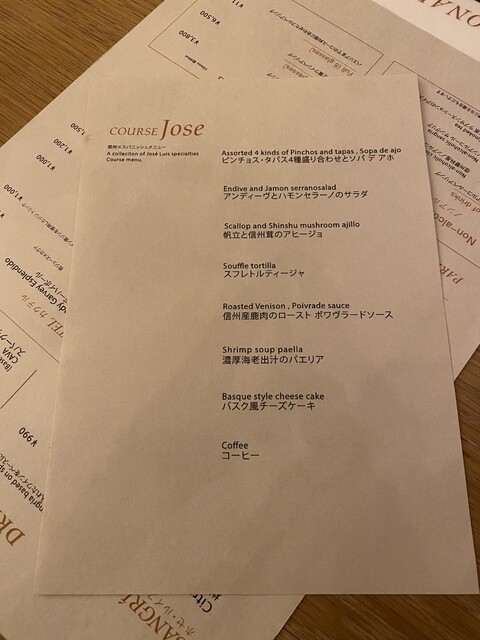 COURSE Jose
信州×スパニッシュメニュー
A colleciton of José Luis specialties
Course menu.
Assorted 4 kinds of Pinchos and tapas , Sopa de ajo
ピンチョス・タパス4種盛り合わせとソパ デ アホ
Endive and Jamon serranosalad
アンディーヴとハモンセラーノのサラダ
Scallop and Shinshu mushroom ajillo
帆立と信州茸のアヒージョ
Souffle tortilla
スフレトルティージャ
Roasted Venison , Poivrade sauce
信州産鹿肉のロースト ポワヴラードソース
Shrimp soup paella
濃厚海老出汁のパエリア
Basque style cheese cake
バスク風チーズケーキ
Coffee
コーヒー
¥6,500
¥3,800
1,500
¥1,200
¥1,000
¥990
Full (6 glasses)
Non-alco
of drinks
dy Garvey Esplendido
カクテル
CAVA
ngria based on sp
DR
SANGRÍ
ホセ・ルイス
Citr